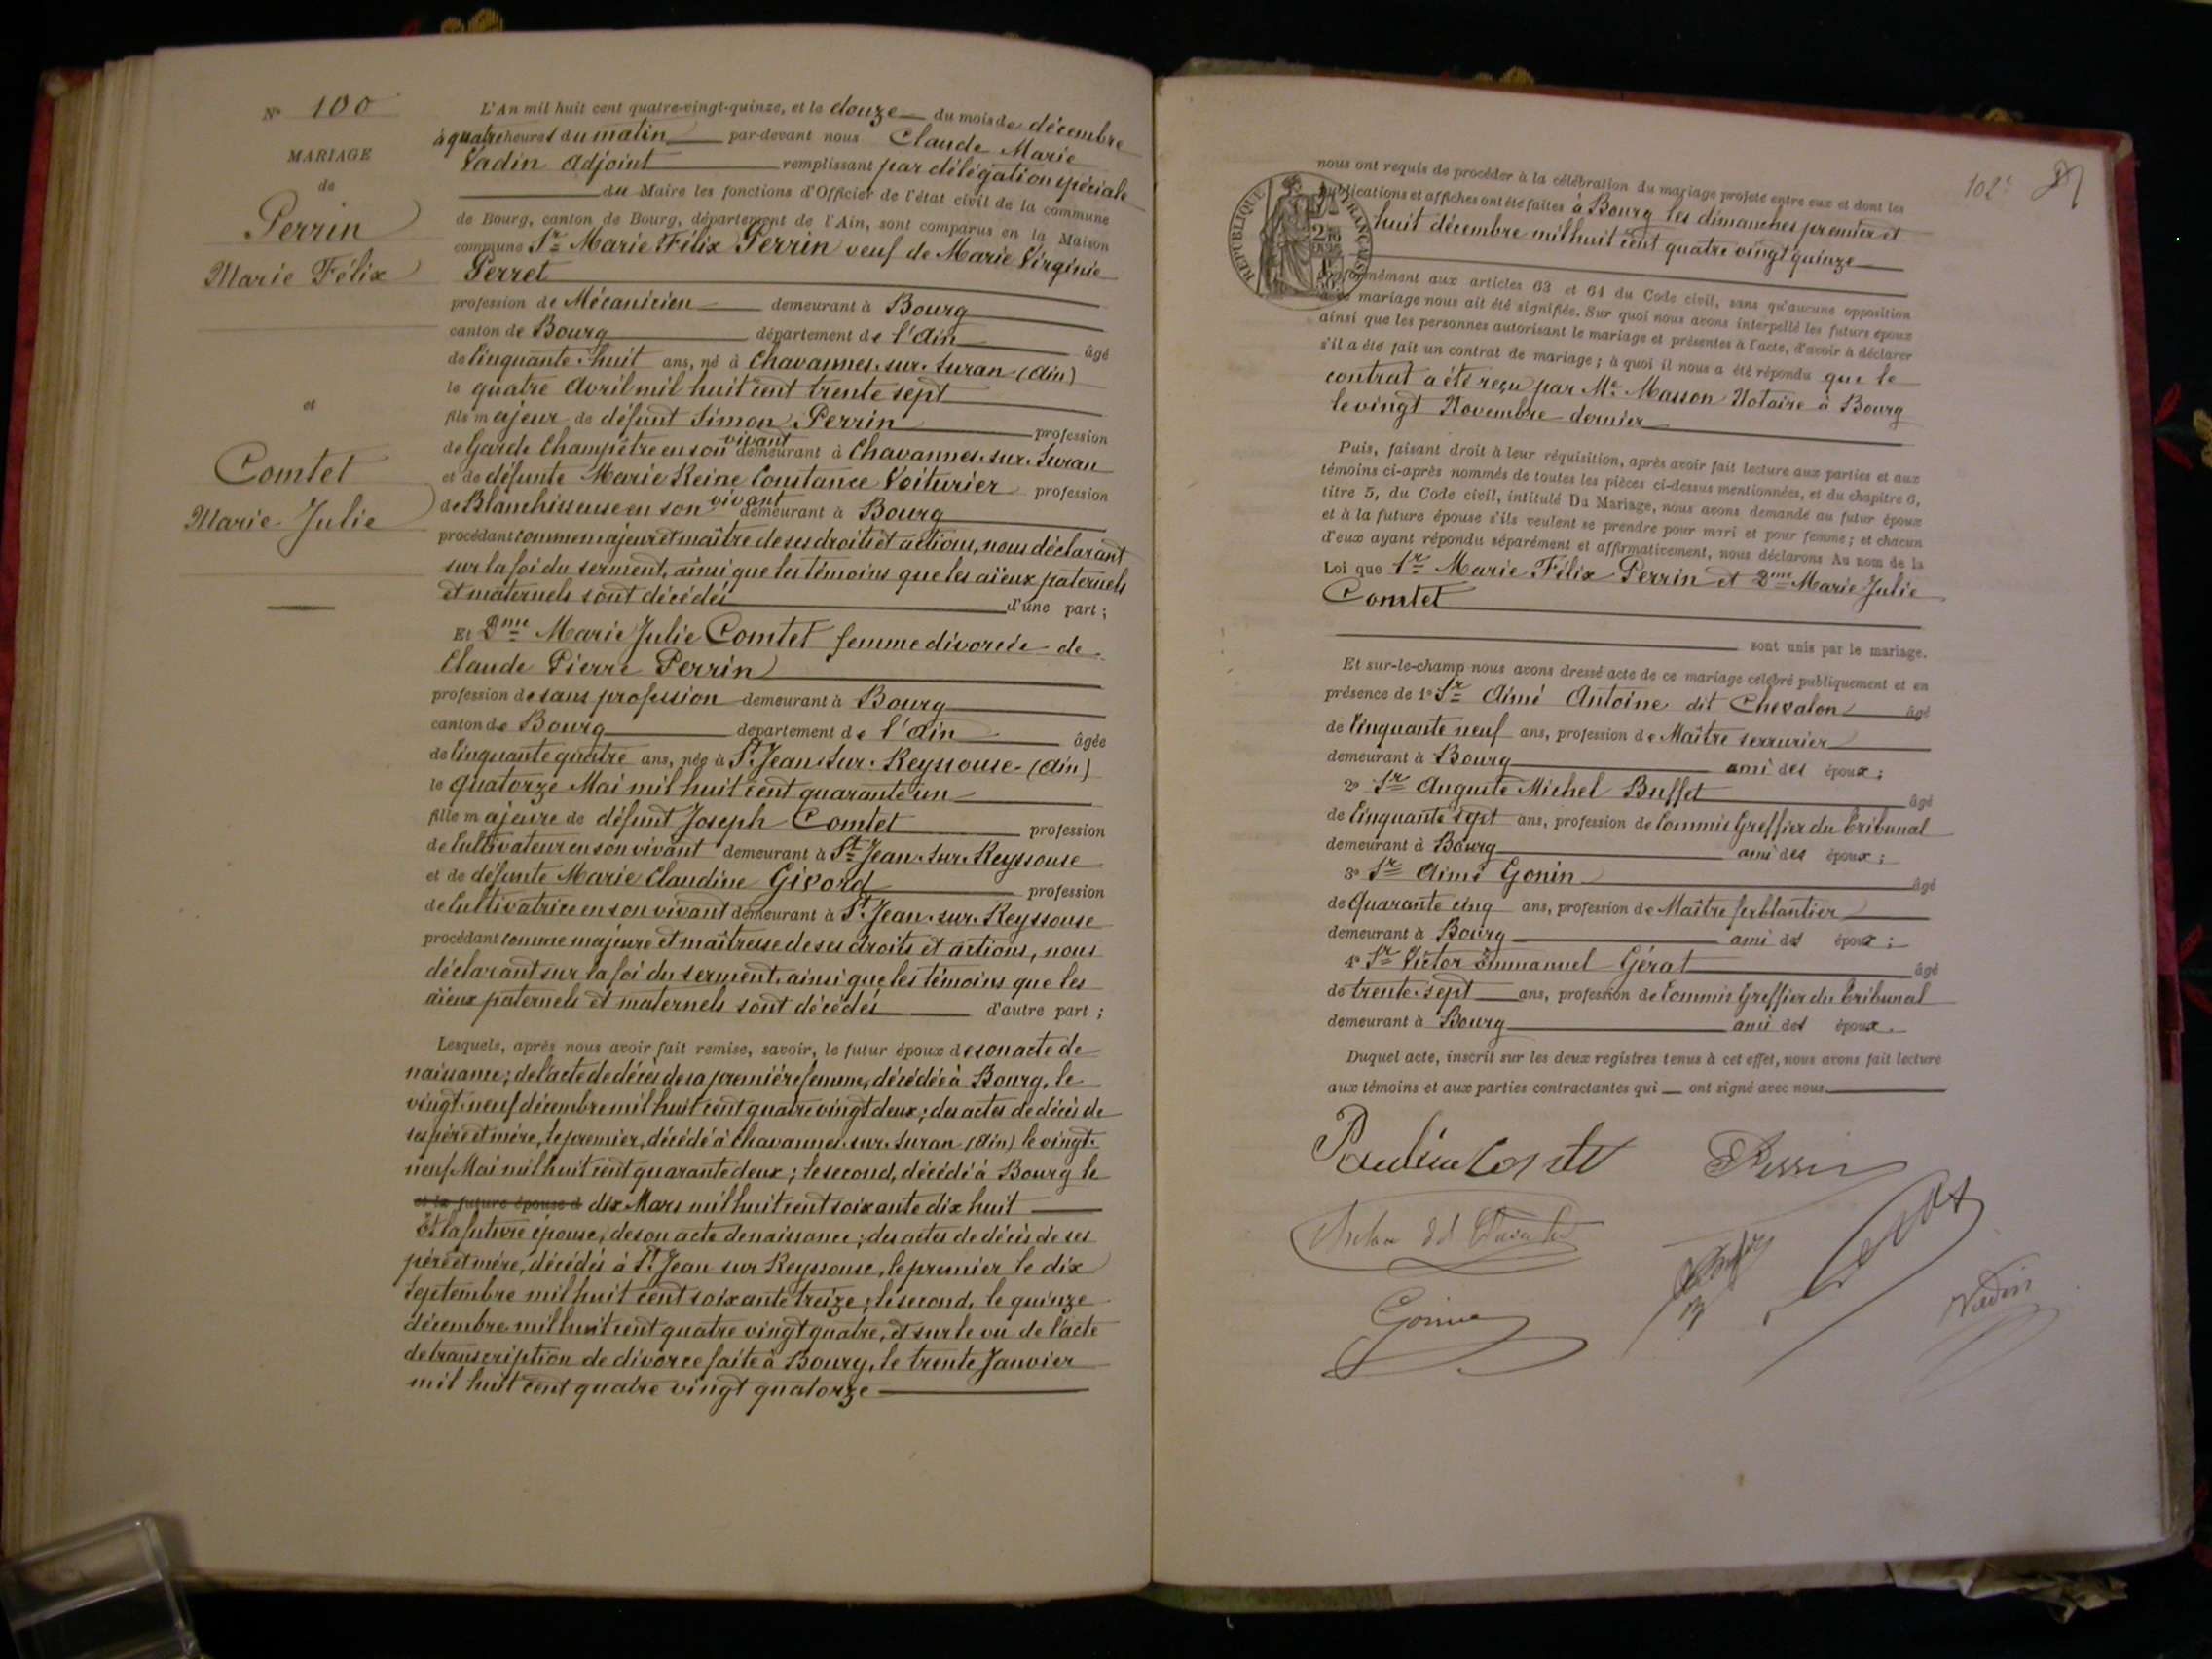 N° 100
MARIAGE
de
Perrin
Marie Félix
et
Comtet
Marie Julie
L'An mil huit cent quatre-vingt-quinze, et le douze du mois de décembre
à quatre heures du matin par-devant nous Claude Marie
Vadin adjoint remplissant par délégation spéciale
du Maire les fonctions d'Officier de l'état civil de la commune
de Bourg, canton de Bourg, département de l'Ain, sont comparus en la Maison
commune Sr Marie Félix Perrin veuf de Marie Virginie
Perret
profession de Mécanicien demeurant à Bourg
canton de Bourg département de l'Ain âgé
de Cinquante-huit ans, né à Chavannes-sur-Suran (Ain)
le quatre Avril mil huit cent trente sept
fils majeur de défunt Simon Perrin profession
de Garde Champêtre en son vivant demeurant à Chavannes-sur-Suran
et de défunte Marie Reine Constance Voiturier profession
de Blanchisseuse en son vivant demeurant à Bourg
procédant comme majeur et maître de ses droits et actions, nous déclarant
sur la foi du serment, ainsi que les témoins que les aïeux paternels
et maternels sont décédés d'une part ;
Et Dme Marie Julie Comtet femme divorcée de
Claude Pierre Perrin
profession de sans profession demeurant à Bourg
canton de Bourg département de l'Ain âgée
de Cinquante quatre ans, née à St Jean-sur-Reyssouse (Ain)
le quatorze Mai mil huit cent quarante un
fille majeure de défunt Joseph Comtet profession
de Cultivateur en son vivant demeurant à St Jean-sur-Reyssouse
et de défunte Marie Claudine Givord profession
de Cultivatrice en son vivant demeurant à St Jean-sur-Reyssouse
procédant comme majeure et maîtresse de ses droits et actions, nous
déclarant sur la foi du serment, ainsi que les témoins que les
aïeux paternels et maternels sont décédés d'autre part ;
Lesquels, après nous avoir fait remise, savoir, le futur époux de son acte de
naissance ; de l'acte de décès de sa première femme, décédée à Bourg, le
vingt-neuf décembre mil huit cent quatre vingt deux ; des actes de décès de
ses père et mère, le premier, décédé à Chavannes-sur-Suran (Ain) le vingt-
neuf Mai mil huit cent quarante deux ; le second, décédé à Bourg le
et la future épouse d dix Mars mil huit cent soixante dix huit
Et la future épouse, de son acte de naissance ; des actes de décès de ses
père et mère, décédés à St Jean sur Reyssouse, le premier le dix
Septembre mil huit cent soixante treize ; le second, le quinze
décembre mil huit cent quatre vingt quatre, et sur le vu de l'acte
de transcription de divorce faite à Bourg, le trente Janvier
mil huit cent quatre vingt quatorze
102e
RÉPUBLIQUE FRANÇAISE
nous ont requis de procéder à la célébration du mariage projeté entre eux et dont les
publications et affiches ont été faites à Bourg les dimanches premier et
huit décembre mil huit cent quatre vingt quinze
conformément aux articles 63 et 64 du Code civil, sans qu'aucune opposition
à ce mariage nous ait été signifiée. Sur quoi nous avons interpellé les futurs époux
ainsi que les personnes autorisant le mariage et présentes à l'acte, d'avoir à déclarer
s'il a été fait un contrat de mariage ; à quoi il nous a été répondu que le
contrat a été reçu par Me Masson Notaire à Bourg
le vingt Novembre dernier
Puis, faisant droit à leur réquisition, après avoir fait lecture aux parties et aux
témoins ci-après nommés de toutes les pièces ci-dessus mentionnées, et du chapitre 6,
titre 5, du Code civil, intitulé Du Mariage, nous avons demandé au futur époux
et à la future épouse s'ils veulent se prendre pour mari et pour femme ; et chacun
d'eux ayant répondu séparément et affirmativement, nous déclarons Au nom de la
Loi que Sr Marie Félix Perrin et Dme Marie Julie
Comtet
sont unis par le mariage.
Et sur-le-champ nous avons dressé acte de ce mariage célébré publiquement et en
présence de 1° Sr Aimé Antoine dit Chevalon âgé
de Cinquante neuf ans, profession de Maître serrurier
demeurant à Bourg ami des époux ;
2° Sr Auguste Michel Buffet âgé
de Cinquante sept ans, profession de Commis Greffier du Tribunal
demeurant à Bourg ami des époux ;
3° Sr Aimé Gonin âgé
de Quarante cinq ans, profession de Maître ferblantier
demeurant à Bourg ami des époux ;
4° Sr Victor Emmanuel Gérat âgé
de trente-sept ans, profession de Commis Greffier du Tribunal
demeurant à Bourg ami des époux.
Duquel acte, inscrit sur les deux registres tenus à cet effet, nous avons fait lecture
aux témoins et aux parties contractantes qui ont signé avec nous
Perrin
Gonin
Vadin